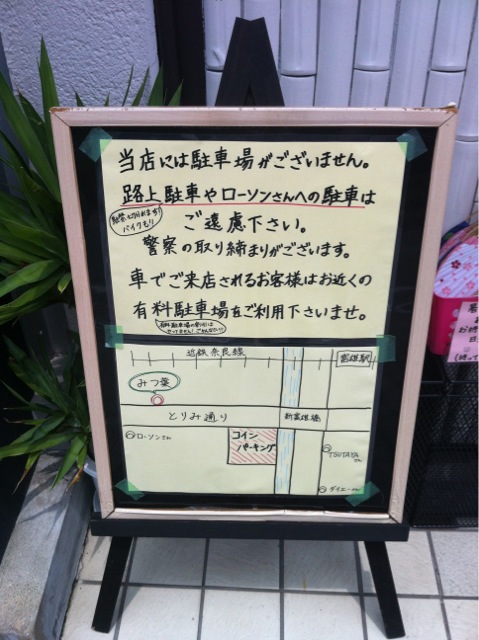 当店には駐車場がございません。
路上駐車やローソンさんへの駐車は
バイクも!!
ご遠慮下さい。
警察の取り締まりがございます。
車でご来店されるお客様はお近くの
有料駐車場をご利用下さいませ。
近鉄奈良線
みつ葉
とりみ通り
ローソンさん
コイン
パーキング
TSUTAYA
さん
ダイエーさん